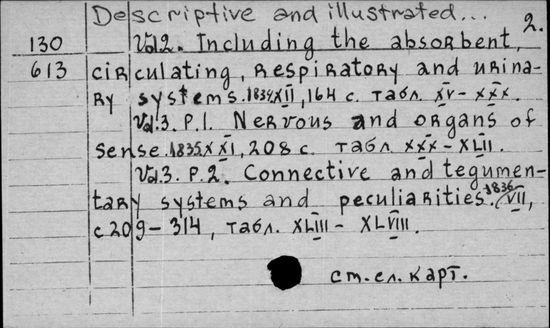 Descriptive and illustrated... 2.
130 Vol.2. Including the absorbent,
613 circulating, respiratory and urina-
ry systems. 1834 XII, 164 c. табл. XV - XXX.
Vol.3. P.1. Nervous and organs of
sense. 1835 XXI, 208 c. табл XXX - XLII.
Vol.3. P.2. Connective and tegumen-
tary systems and peculiarities. 1836 VII,
c 209 - 314, табл. XLIII - XLVIII.
см. сл. карт.